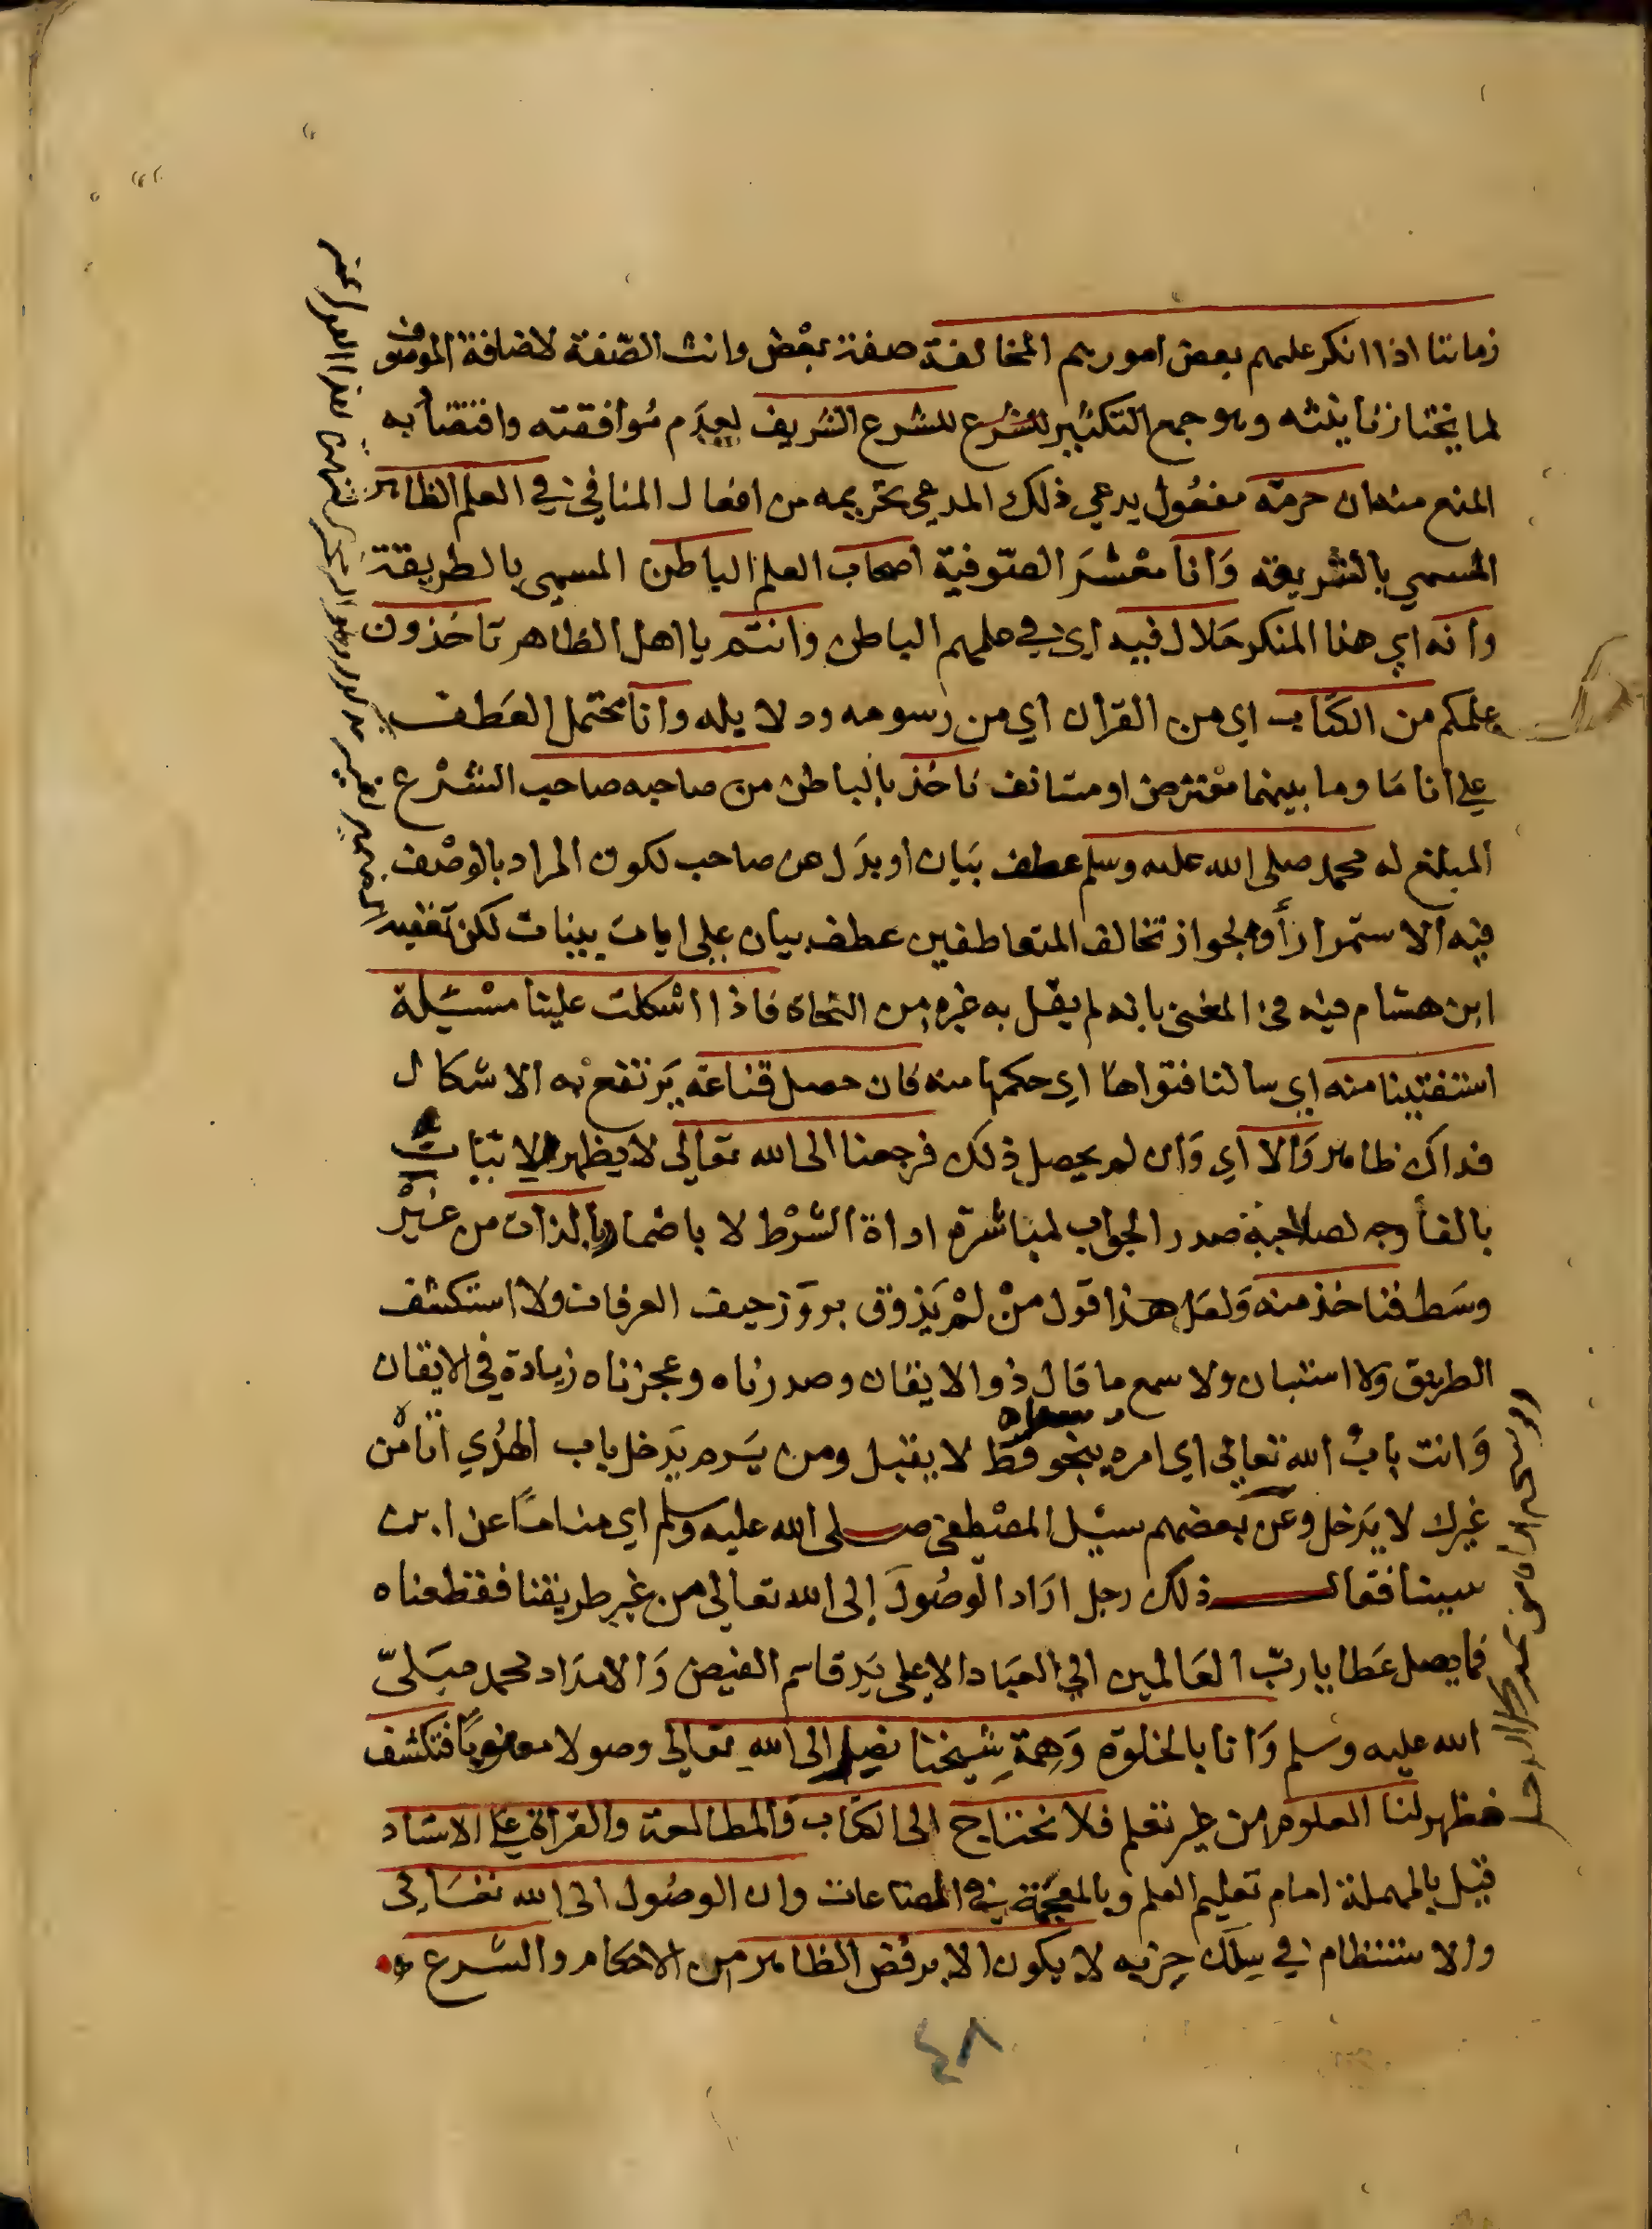 زماننا اذا انكر عليهم بعض امورهم المخالفة صفة بعض وانث الصّفة لاضافة الموصوف
لما يختار تانيثه وهو جمع التكثير للشرع للشرع الشريف لعدم مُوافقته واقتضأ به
المنع منه ان حرمته مفعُول يدعي ذلك المدعي تحريمه من افعال المنافي في العلم الظاهر
المسمي بالشريعة وَانا معْشَرَ الصّوفية اصحاب العلم الباطن المسمى بالطريقة
وانه اي هذا المنكر حَلال فيه اي في علمهم الباطن وانتم يا اهل الظاهر تاخذون
علمكم من الكتاب اي من القران اي من رسومه ودلايله وانا محتمل العَطف
علي انا مَا وما بينهما معْترض او مستانف ناخذ بالباطن من صاحبه صاحب الشرْع
المبلغ له محمد صلى الله عليه وسلم عطف بيَان او بدَل من صاحب لكون المراد بالوصْف
فيه الاستمرار أو لجواز تخالف المتعاطفين عطف بيان علي ايات بينات لكن تعقبه
ابن هشام فيه في المغني بانه لم يقل به غيره من النحاة فاذا اشكلت علينا مسْيَلة
استفتينا منه اي سالنا فتواها اي حكمها منه فان حصل قناعة يَرتفع به الاشكال
فذاك ظاهر وَالا اي وَان لم يحصل ذلك فرجعنا الى الله تعالَى لا يظهر الاتيان
بالفأ وجه لصلاحية صدر الجواب لمباشرة اداة الشرْط لا باضمار بالذات من غيْر
وسَط فناخذ منه وَلعَل هذا قول منْ لمْ يَذوق برو زحيف العرفان ولا استكشف
الطريق ولا استبان ولا سمع ما قال ذو الايقان وصدرناه وعجزناه زيادة في الايقان
وَانت بابُ الله تعالي اي امره بنحو قط لا يقبل ومن يَرم يَدخل باب الهدُي اتاهُ من
غيرك لا يَدخل وعَن بعضهم سيْل المصْطفى صلى الله عليه وسلم اي منامًا عن ابن
سينا فقال ذلك رجل ارَاد الوصُولَ إلى الله تعالى من غير طريقنا فقطعناه
فما يصل عَطايا ربّ العَالمين الي العبَاد الا علي يَد قاسم الفيض وَالامدَاد محمد صَلىّ
الله عليه وسلم وَانا بالخلوة وَهمةِ شيخنا نصِل إلى الله تعَالى وصولا معنويًا فتكشف
فظهر لنا العلوم من غير تعلم فلا نحتاج الى الكتاب وَالمطالعة والقراة علي الاستاد
قيل بالمهملة امام تعليم العلم وبالمعجَمة في الصناعات وان الوصُول الى الله تعَالى
والاستنظام في سِلك حِزبه لا يكون الا برفض الظاهر من الاحكام والشرع
٤٨